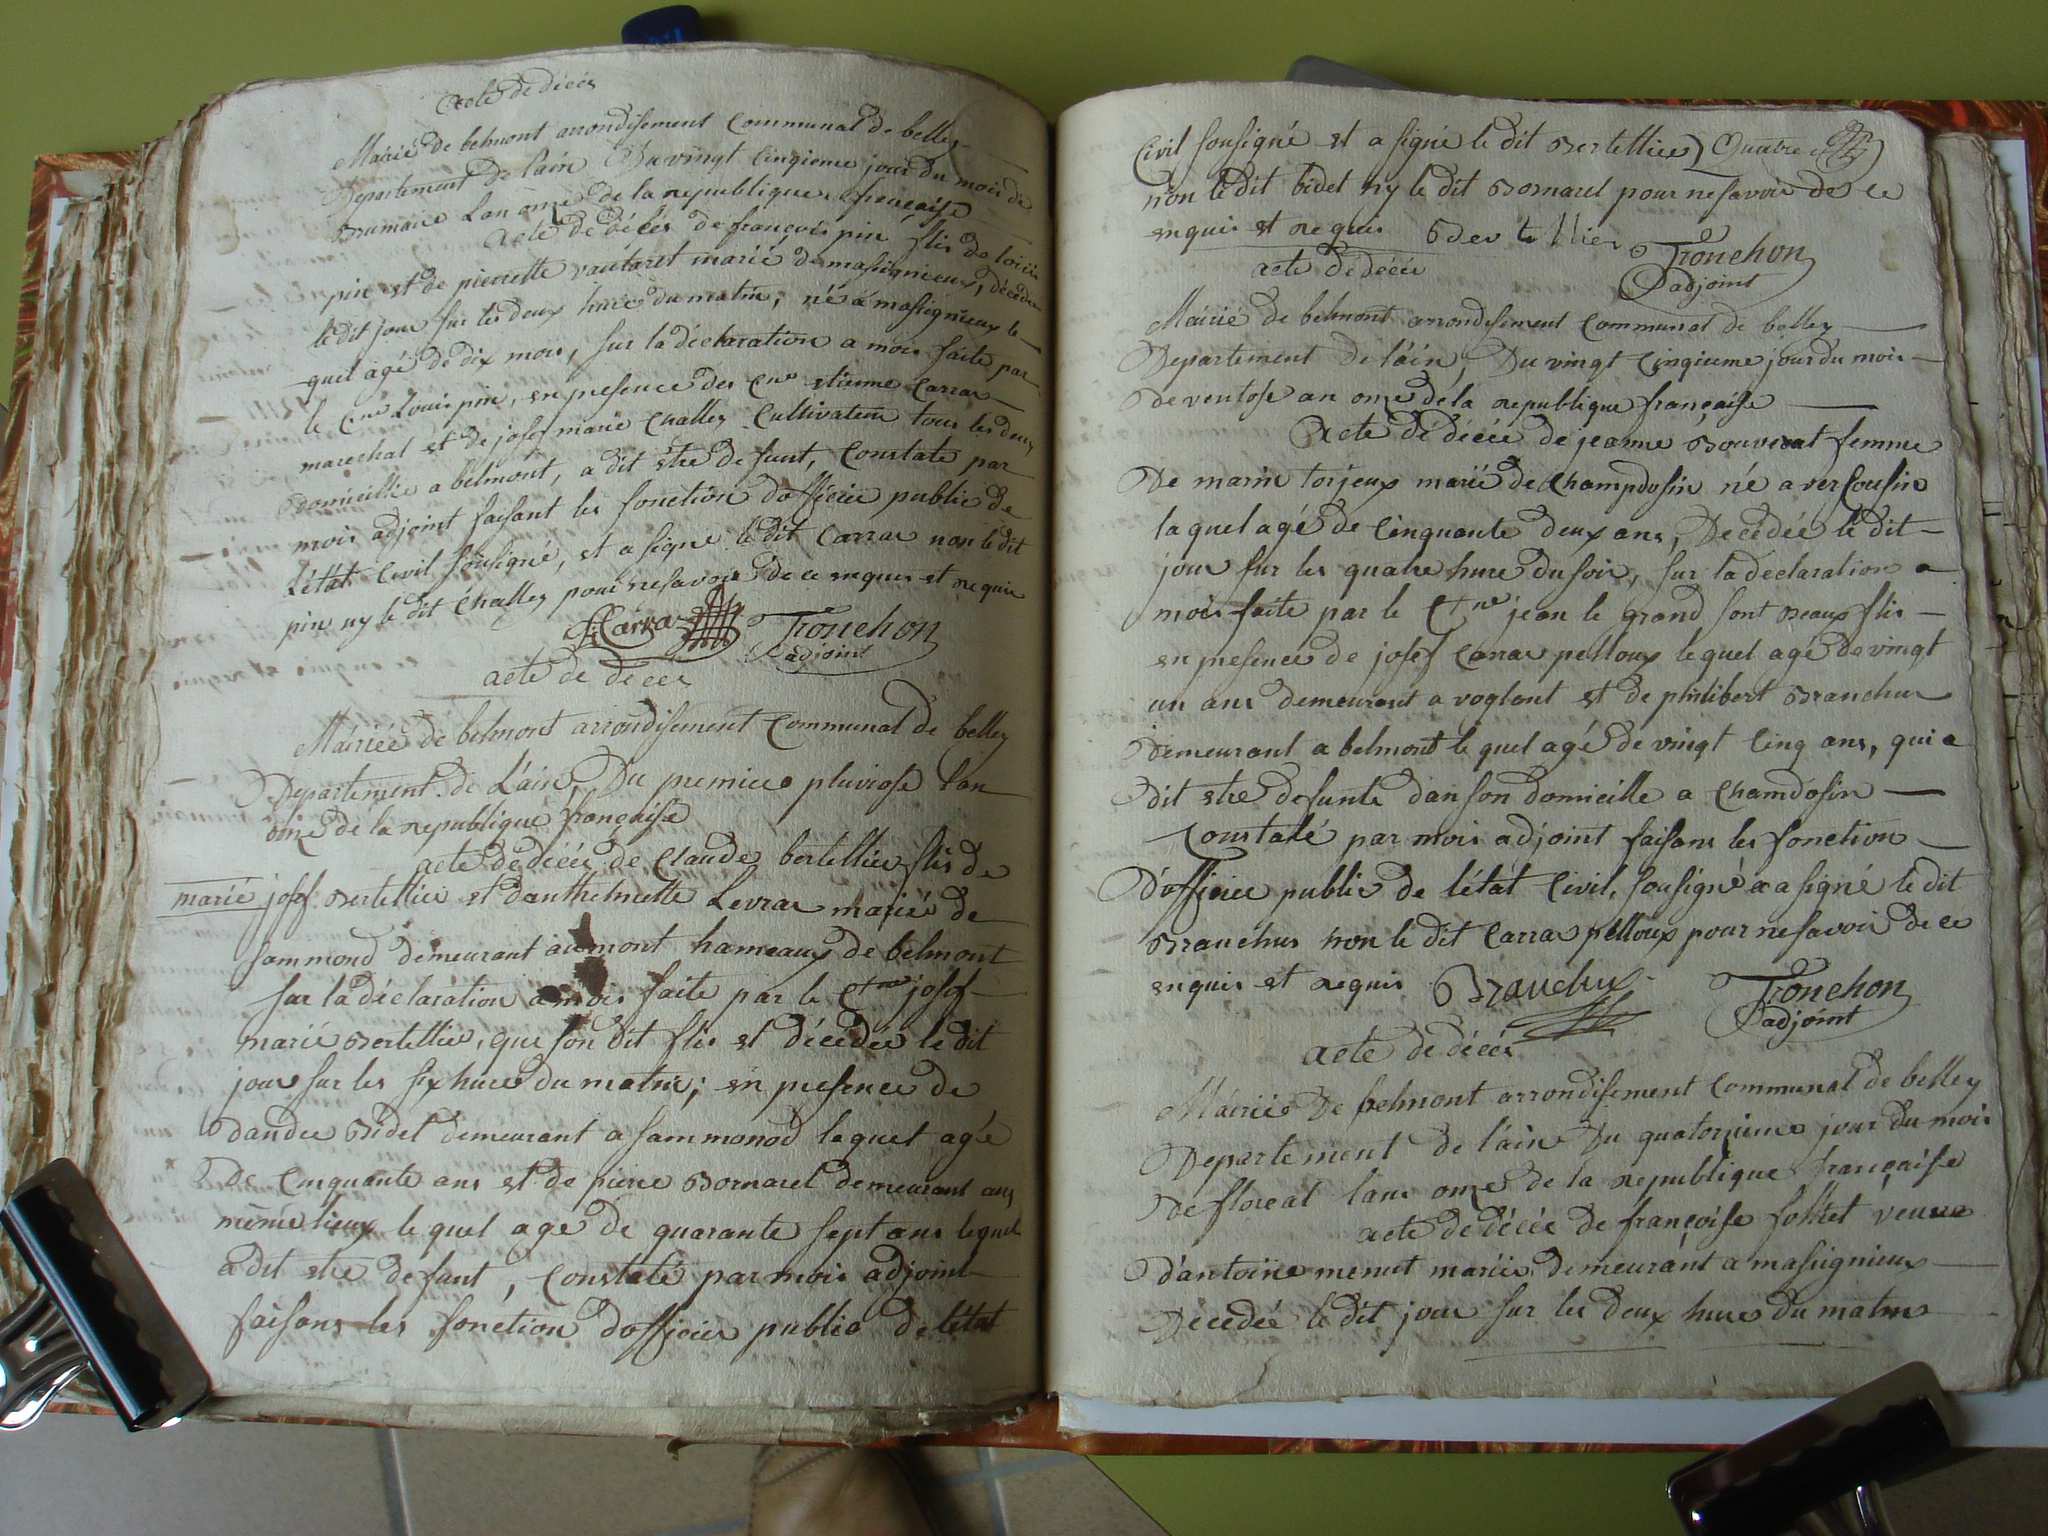 acte de décés
Mairie de belmont arrondisement Communal de belley
Departement de lain Du vingt Cinqieme jour du mois de
Brumaire Lan onze de la republique française
acte de décés de françois pin flis de loüis
pin et de pierrette vautaret marié de massignieux, décédé
le dit jour sur les deux hure du matin, né a massignieux le
quel agé de dix mois, sur la déclaration a mois faite par
le Cne Louis pin, en presence des Cne etienne Carrar
marechal et de josef marie challey Cultivateur tous les deux
Domicillie a belmont, a dit etre defunt, Constate par
mois adjoint faisant les fonction d'officier public de
L'état Civil sousigné, et a signe le dit Carrar non le dit
pin ny le dit Challey pour ne savoir de ce enquis et requis
Carra Tronchon
adjoint
acte de décés
Mairiee de belmont arrondisement Communal de belley
Departement de L'ain, Du premier pluviose l'an
onze de la republique française
acte de décés de Claude bertellier flis de
marié josef Bertellier et d'anthelmette Levrar mariés de
sammonod demeurant au mont hameaux de belmont
sur la déclaration a mois faite par le Ctne josef
marié Bertellier, que son dit flis est décédée le dit
jour sur les six hure du matin; en presence de
dandee Bidet demeurant a sammonod le quel agé
de Cinquante ans et de pierre Bornarel demeurant aux
même lieux le quel agé de quarante sept ans lequel
a dit etre defunt, Constaté par mois adjoint
faisans les fonction d'officier public de l'état
Civil sousigné et a signé le dit Bertellier
non le dit bidet ny le dit Bornarel pour ne savoir de ce
enquis et requis Bertellier Tronchon
adjoint
acte de décés
Mairié de belmont arrondisement Communal de belley
Departement de l'ain, Du vingt Cinqieme jour du mois
de ventose an onze de la republique française
Acte de décés de jeanne Bouverat femme
De marin torjeux marié de Champdosin né a versousin
la quel agé de Cinquante deux ans, Decédée le dit
jour sur les quatre hure du soir, sur la declaration a
mois faite par le Ctne jean le grand sont Beaux flis
en presence de josef Carrar pelloux le quel agé de vingt
un ans demeurant a voglant et de philibert Branchus
demeurant a belmont le quel agé de vingt Cinq ans, qui a
dit etre defunte dan son domicille a Chamdosin
Constaté par mois adjoint faisans les fonction
d'officier public de l'état Civil, sousigné a a signé le dit
Branchus non le dit Carrar pelloux pour ne savoir de ce
enquis et requis Branchux Tronchon
adjoint
acte de décés
Mairiee De belmont arrondisement Communal de belley
Departement de l'ain Du quatorzieme jour du mois
de floreal lans onze de la republique française
acte de décés de françoise veuve
d'antoine menut mariée demeurant a massignieux
Decedée le dit jour sur les deux hure du matin